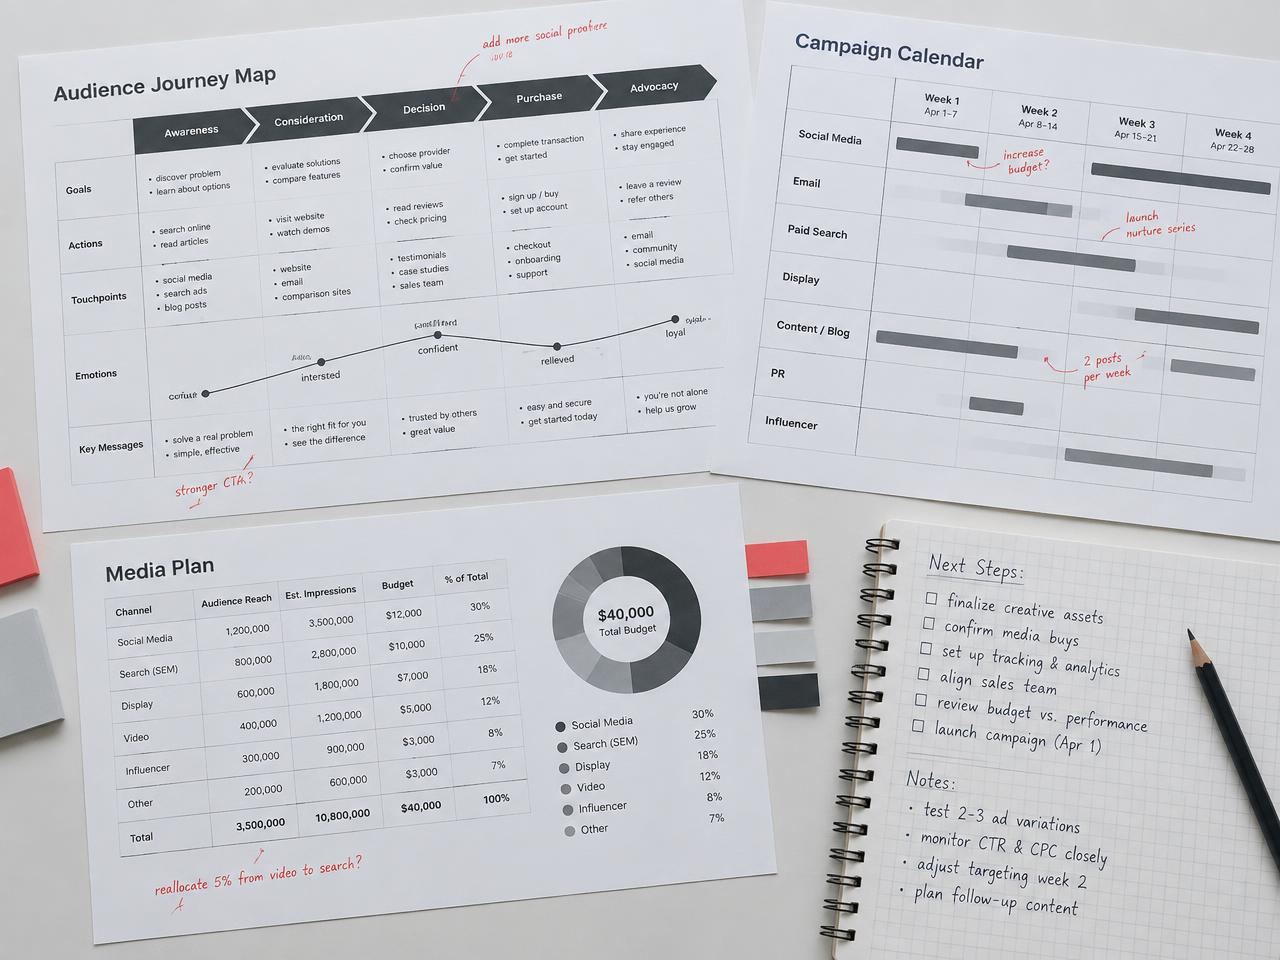 add more social
Audience Journey Map
Awareness
Consideration
Decision
Purchase
Advocacy
Goals
• discover problem
• learn about options
• evaluate solutions
• compare features
• choose provider
• confirm value
• complete transaction
• get started
• share experience
• stay engaged
Actions
• search online
• read articles
• visit website
• watch demos
• read reviews
• check pricing
• sign up / buy
• set up account
• leave a review
• refer others
Touchpoints
• social media
• search ads
• blog posts
• website
• email
• comparison sites
• testimonials
• case studies
• sales team
• checkout
• onboarding
• support
• email
• community
• social media
Emotions
intersted
confident
relleved
loyal
Key Messages
• solve a real problem
• simple, effective
• the right fit for you
• see the difference
• trusted by others
• great value
• easy and secure
• get started today
• you're not alone
• help us grow
stronger CTA?
Campaign Calendar
Week 1
Apr 1–7
Week 2
Apr 8–14
Week 3
Apr 15–21
Week 4
Apr 22–28
Social Media
increase
budget?
Email
launch
nurture series
Paid Search
Display
Content / Blog
2 posts
per week
PR
Influencer
Media Plan
Channel Audience Reach Est. Impressions Budget % of Total
Social Media 1,200,000 3,500,000 $12,000 30%
Search (SEM) 800,000 2,800,000 $10,000 25%
Display 600,000 1,800,000 $7,000 18%
Video 400,000 1,200,000 $5,000 12%
Influencer 300,000 900,000 $3,000 8%
Other 200,000 600,000 $3,000 7%
Total 3,500,000 10,800,000 $40,000 100%
reallocate 5% from video to search?
$40,000
Total Budget
Social Media 30%
Search (SEM) 25%
Display 18%
Video 12%
Influencer 8%
Other 7%
Next Steps:
finalize creative assets
confirm media buys
set up tracking & analytics
align sales team
review budget vs. performance
launch campaign (Apr 1)
Notes:
• test 2-3 ad variations
• monitor CTR & CPC closely
• adjust targeting week 2
• plan follow-up content